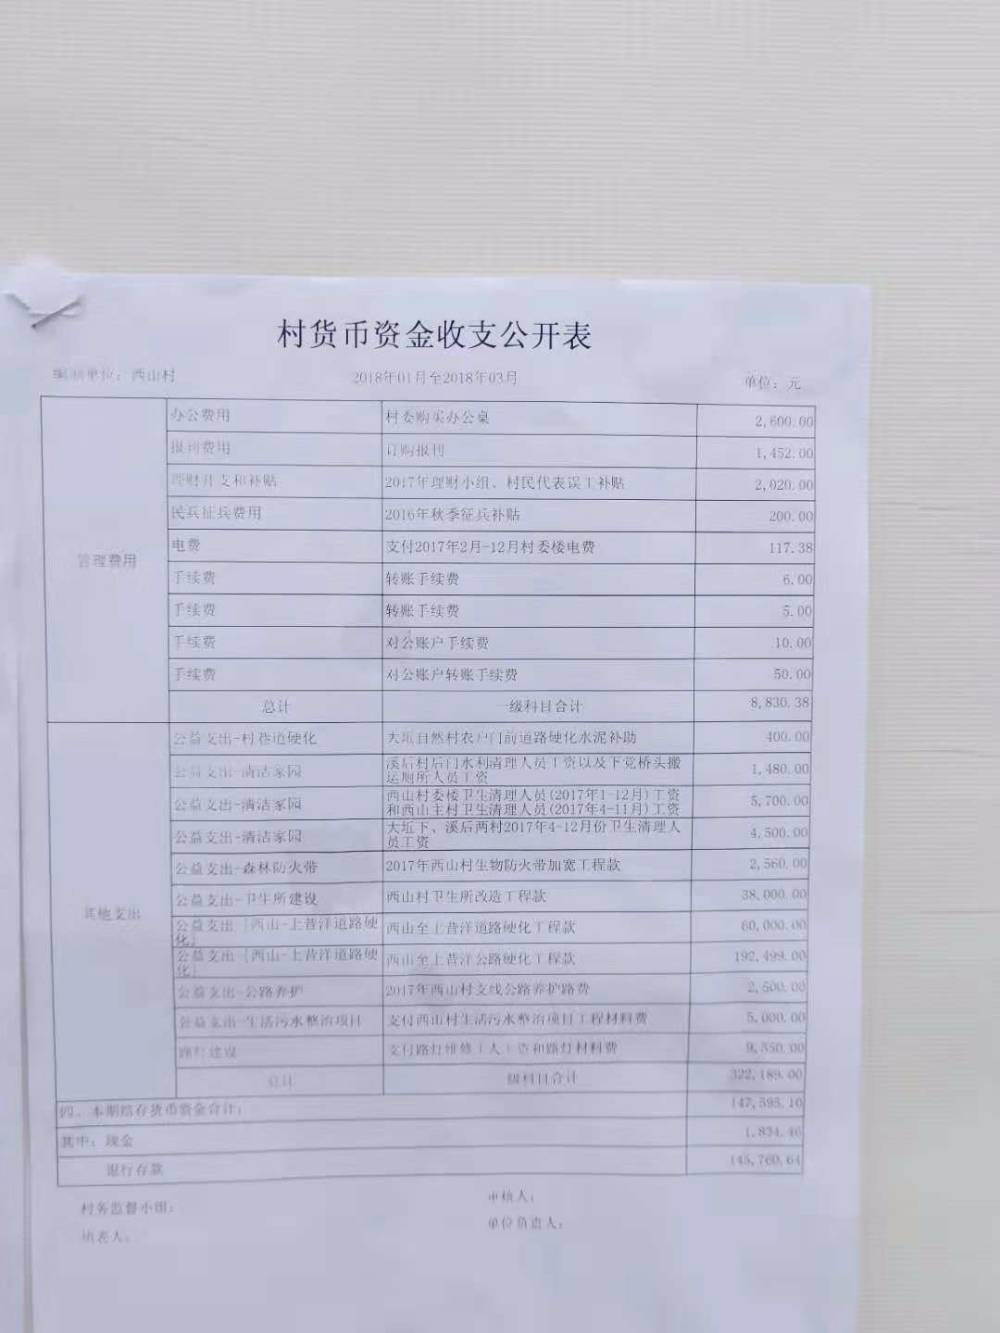 村货币资金收支公开表
编制单位：西山村 2018年01月至2018年03月 单位：元
管理费用
办公费用 村委购买办公桌 2,600.00
报刊费用 订购报刊 1,452.00
理财开支和补贴 2017年理财小组、村民代表误工补贴 2,020.00
民兵征兵费用 2016年秋季征兵补贴 200.00
电费 支付2017年2月-12月村委楼电费 117.38
手续费 转账手续费 6.00
手续费 转账手续费 5.00
手续费 对公账户手续费 10.00
手续费 对公账户转账手续费 50.00
总计 一级科目合计 8,830.38
其他支出
公益支出-村巷道硬化 大坵自然村农户门前道路硬化水泥补助 400.00
公益支出-清洁家园 溪后村后门水利清理人员工资以及下党桥头搬
运厕所人员工资 1,480.00
公益支出-清洁家园 西山村委楼卫生清理人员(2017年1-12月)工资
和西山主村卫生清理人员(2017年4-11月)工资 5,700.00
公益支出-清洁家园 大坵下、溪后两村2017年4-12月份卫生清理人
员工资 4,500.00
公益支出-森林防火带 2017年西山村生物防火带加宽工程款 2,560.00
公益支出-卫生所建设 西山村卫生所改造工程款 38,000.00
公益支出［西山-上昔洋道路硬
化］ 西山至上昔洋道路硬化工程款 60,000.00
公益支出［西山-上昔洋道路硬
化］ 西山至上昔洋公路硬化工程款 192,499.00
公益支出-公路养护 2017年西山村支线公路养护路费 2,500.00
公益支出-生活污水整治项目 支付西山村生活污水整治项目工程材料费 5,000.00
路灯建设 支付路灯维修（人）工和路灯材料费 9,550.00
总计 一级科目合计 322,189.00
四、本期结存货币资金合计： 147,595.10
其中：现金 1,834.46
银行存款 145,760.64
村务监督小组： 审核人：
填表人： 单位负责人：